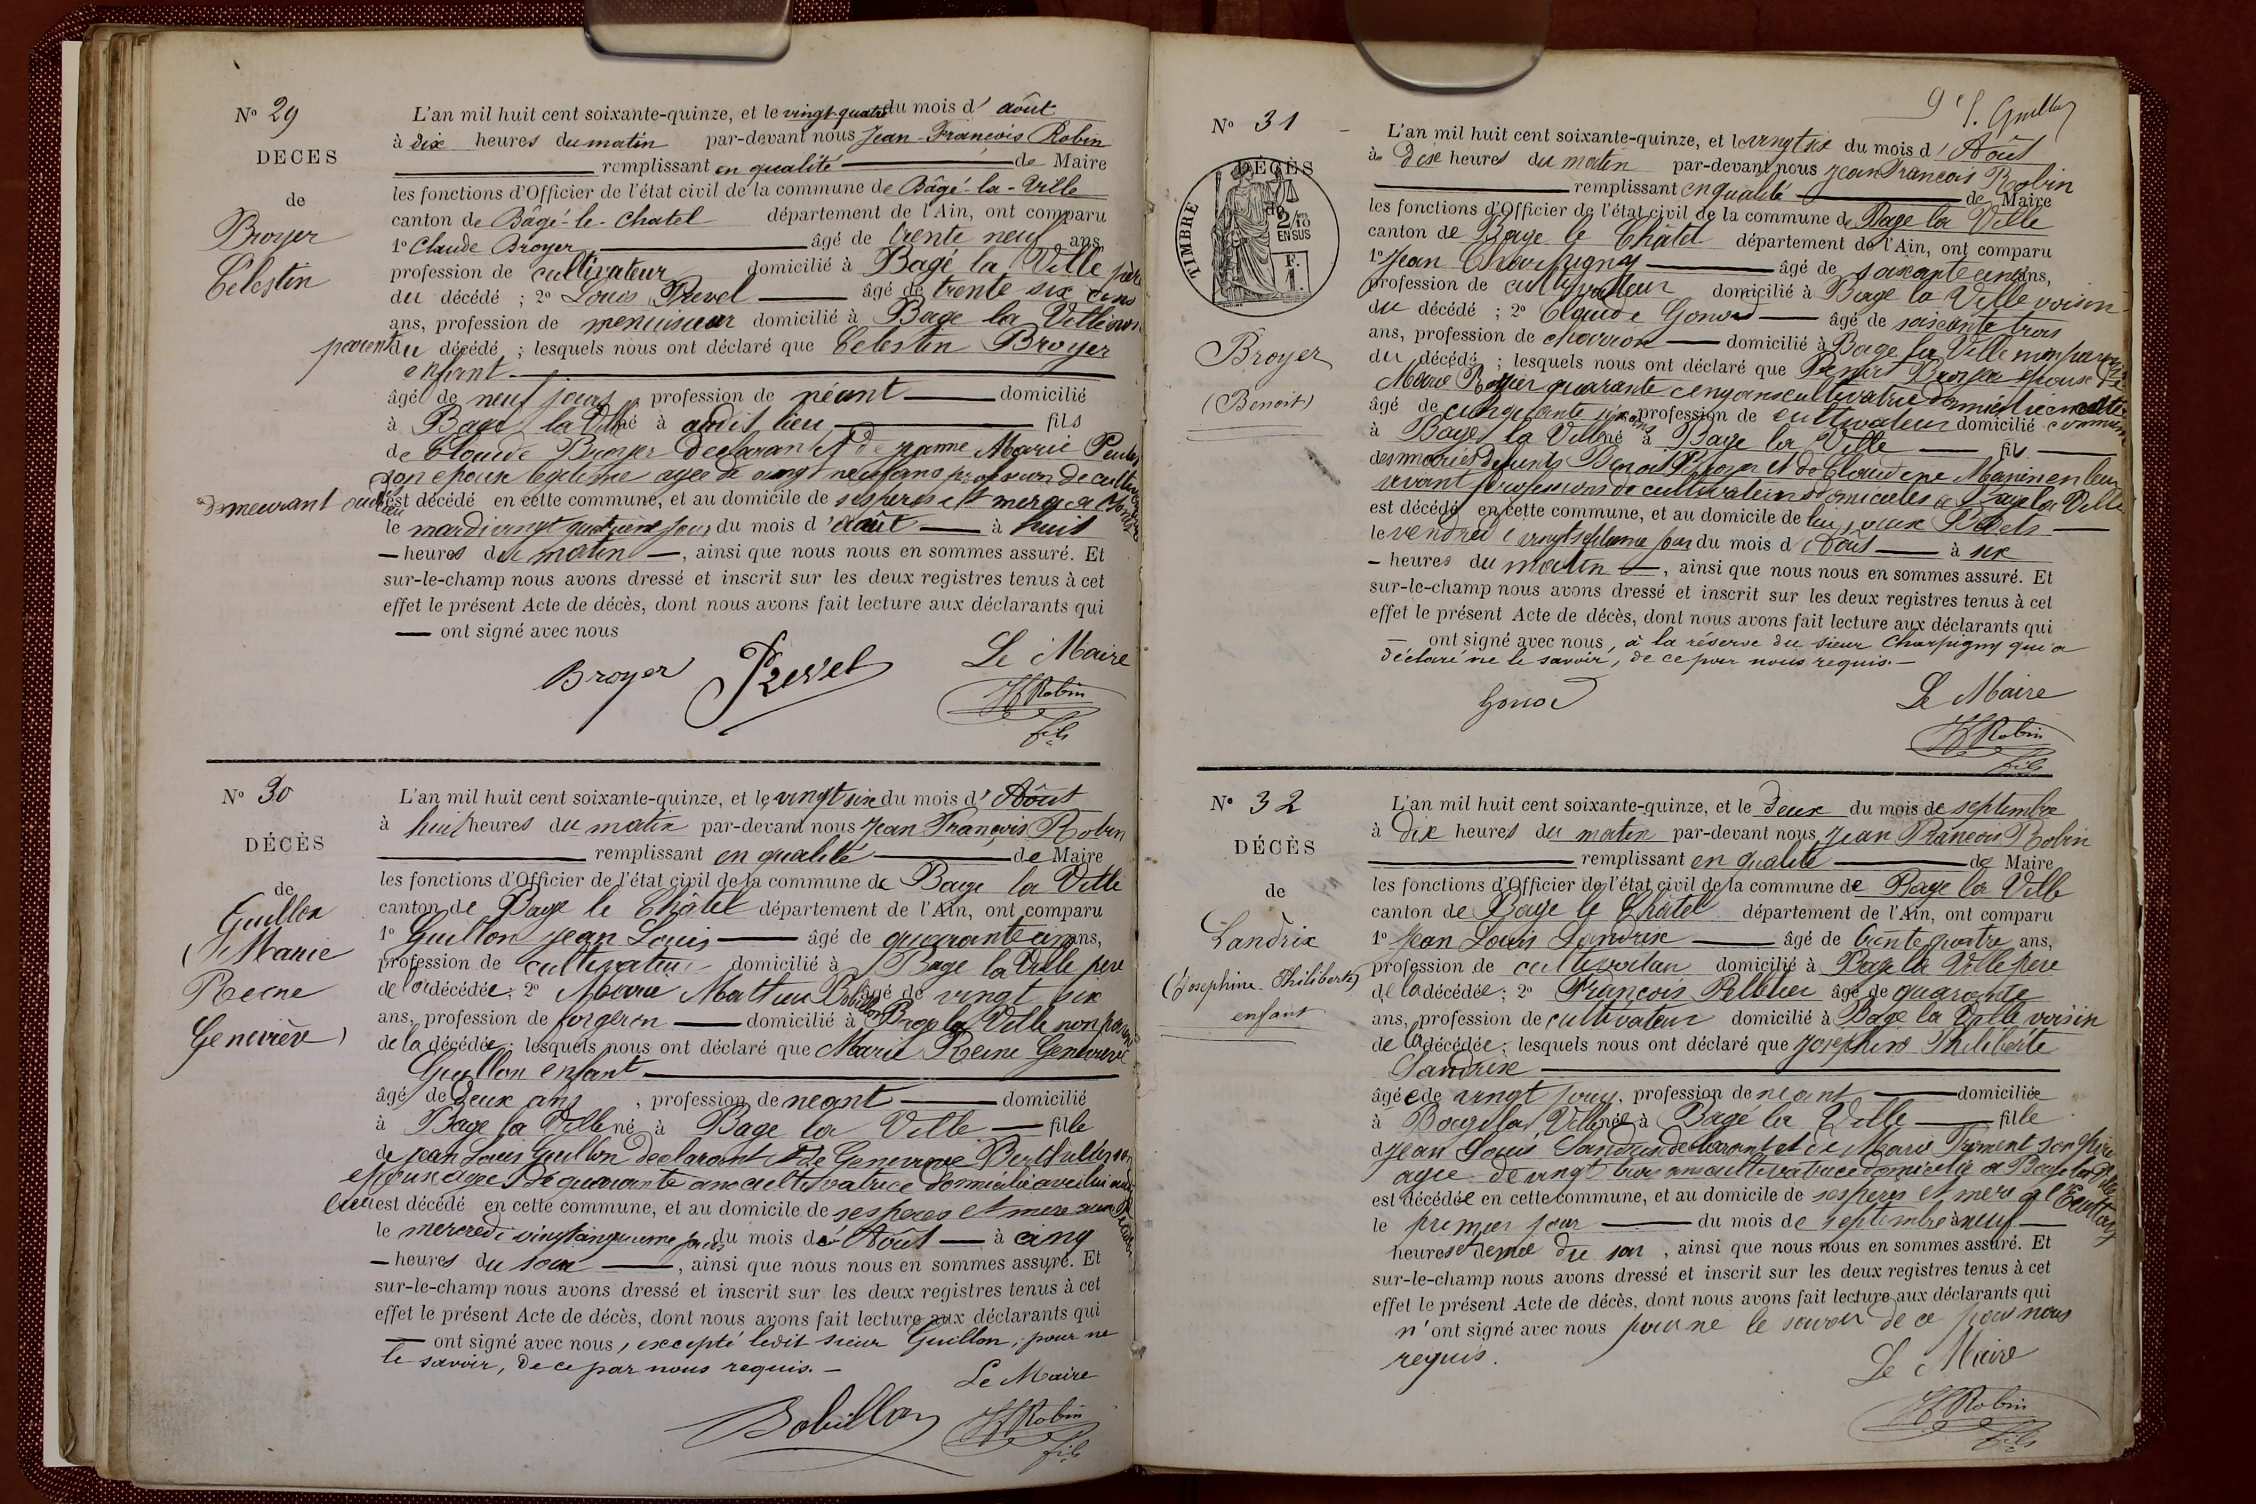 Nº 29
DECES
de
Broyer
Celestin
L'an mil huit cent soixante-quinze, et le vingt-quatre du mois d' août
à dix heures du matin par-devant nous Jean-François Robin
remplissant en qualité de Maire
les fonctions d'Officier de l'état civil de la commune de Bâgé-la-Ville
canton de Bâgé-le-Chatel département de l'Ain, ont comparu
1º Claude Broyer âgé de trente neuf ans,
profession de cultivateur domicilié à Bagé la Ville père
du décédé ; 2º Louis Prevel âgé de trente six ans
ans, profession de menuisier domicilié à Bage la Ville non
parent du décédé ; lesquels nous ont déclaré que Celestin Broyer
enfant
âgé de neuf jours, profession de néant domicilié
à Bagé la Ville né à audit lieu fils
de Claude Broyer declarant et de Marie
son epouse legitime agée de vingt neuf ans profession de
demeurant audit lieu est décédé en cette commune, et au domicile de ses peres et mere a
le mardi vingt quatrieme jour du mois d'Août à huit
heures du matin, ainsi que nous nous en sommes assuré. Et
sur-le-champ nous avons dressé et inscrit sur les deux registres tenus à cet
effet le présent Acte de décès, dont nous avons fait lecture aux déclarants qui
ont signé avec nous
Broyer Prevel Le Maire
JF Robin
fils
Nº 30
DÉCÈS
de
Guillon
(Marie
Reine
Geneviève)
L'an mil huit cent soixante-quinze, et le vingt six du mois d' Août
à huit heures du matin par-devant nous Jean François Robin
remplissant en qualité de Maire
les fonctions d'Officier de l'état civil de la commune de Bage la Ville
canton de Bage le Châtel département de l'Ain, ont comparu
1º Guillon Jean Louis âgé de quarante cinq ans,
profession de cultivateur domicilié à Bage la Ville pere
de la décédée; 2º Marie Mathieu Bobillon âgé de vingt six
ans, profession de forgeron domicilié à Bage la Ville non parent
de la décédée; lesquels nous ont déclaré que Marie Reine Genevieve
Guillon enfant
âgé de deux ans, profession de neant domicilié
à Bage la Ville né à Bage la Ville fille
de Jean Louis Guillon declarant et de Genevieve son
epouse agee de quarante ans cultivatrice domiciliée avec lui
lieu est décédé en cette commune, et au domicile de ses peres et mere
le mercredi vingt cinquieme jour du mois de Août à cinq
heures du soir, ainsi que nous nous en sommes assuré. Et
sur-le-champ nous avons dressé et inscrit sur les deux registres tenus à cet
effet le présent Acte de décès, dont nous avons fait lecture aux déclarants qui
ont signé avec nous, excepté ledit sieur Guillon, pour ne
le savoir, de ce par nous requis.
Le Maire
Bobillon JF Robin
fils
9e f. Guillon
Nº 31
DÉCÈS
de
TIMBRE
2/10
EN SUS
F.
1.
Broyer
(Benoit)
L'an mil huit cent soixante-quinze, et le vingt six du mois d' Août
à Dix heures du matin par-devant nous Jean François Robin
remplissant en qualité de Maire
les fonctions d'Officier de l'état civil de la commune de Bage la Ville
canton de Bage le Châtel département de l'Ain, ont comparu
1º Jean Charpigny âgé de soixante cinq ans,
profession de cultivateur domicilié à Bage la Ville voisin
du décédé ; 2º Claude Gonod âgé de soixante trois
ans, profession de charron domicilié à Bage la Ville non parent
du décédé ; lesquels nous ont déclaré que Benoit Broyer epoux de
Marie quarante cinq ans cultivatrice
âgé de cinquante six ans profession de cultivateur domicilié
à Bage la Ville né à Bage la Ville fils
des mariés defunts Benoit Broyer et de Claudine en leur
vivant professions de cultivateurs domiciliés a Bage la Ville
est décédé en cette commune, et au domicile de lui
le vendredi vingt septieme jour du mois d'Août à six
heures du matin, ainsi que nous nous en sommes assuré. Et
sur-le-champ nous avons dressé et inscrit sur les deux registres tenus à cet
effet le présent Acte de décès, dont nous avons fait lecture aux déclarants qui
ont signé avec nous, à la réserve du sieur Charpigny qui a
déclaré ne le savoir, de ce par nous requis.
Gonod Le Maire
JF Robin
fils
Nº 32
DÉCÈS
de
Landrix
(Josephine Philiberte)
enfant
L'an mil huit cent soixante-quinze, et le Deux du mois de septembre
à Dix heures du matin par-devant nous Jean François Robin
remplissant en qualite de Maire
les fonctions d'Officier de l'état civil de la commune de Bage la Ville
canton de Bage le Châtel département de l'Ain, ont comparu
1º Jean Louis Landrix âgé de trente quatre ans,
profession de cultivateur domicilié à Bage la Ville pere
de la décédée; 2º François Pelletier âgé de quarante
ans, profession de cultivateur domicilié à Bage la Ville voisin
de la décédée; lesquels nous ont déclaré que Josephine Philiberte
Landrix
âgée de vingt jours, profession de neant domiciliée
à Bage la Ville née à Bagé la Ville fille
d Jean Louis Landrix declarant et de Marie
agee de vingt trois ans cultivatrice domiciliée a Bage la Ville
est décédée en cette commune, et au domicile de ses peres et mere
le premier jour du mois de septembre à neuf
heures et demie du soir, ainsi que nous nous en sommes assuré. Et
sur-le-champ nous avons dressé et inscrit sur les deux registres tenus à cet
effet le présent Acte de décès, dont nous avons fait lecture aux déclarants qui
n'ont signé avec nous pour ne le savoir de ce par nous
requis.
Le Maire
JF Robin
fils